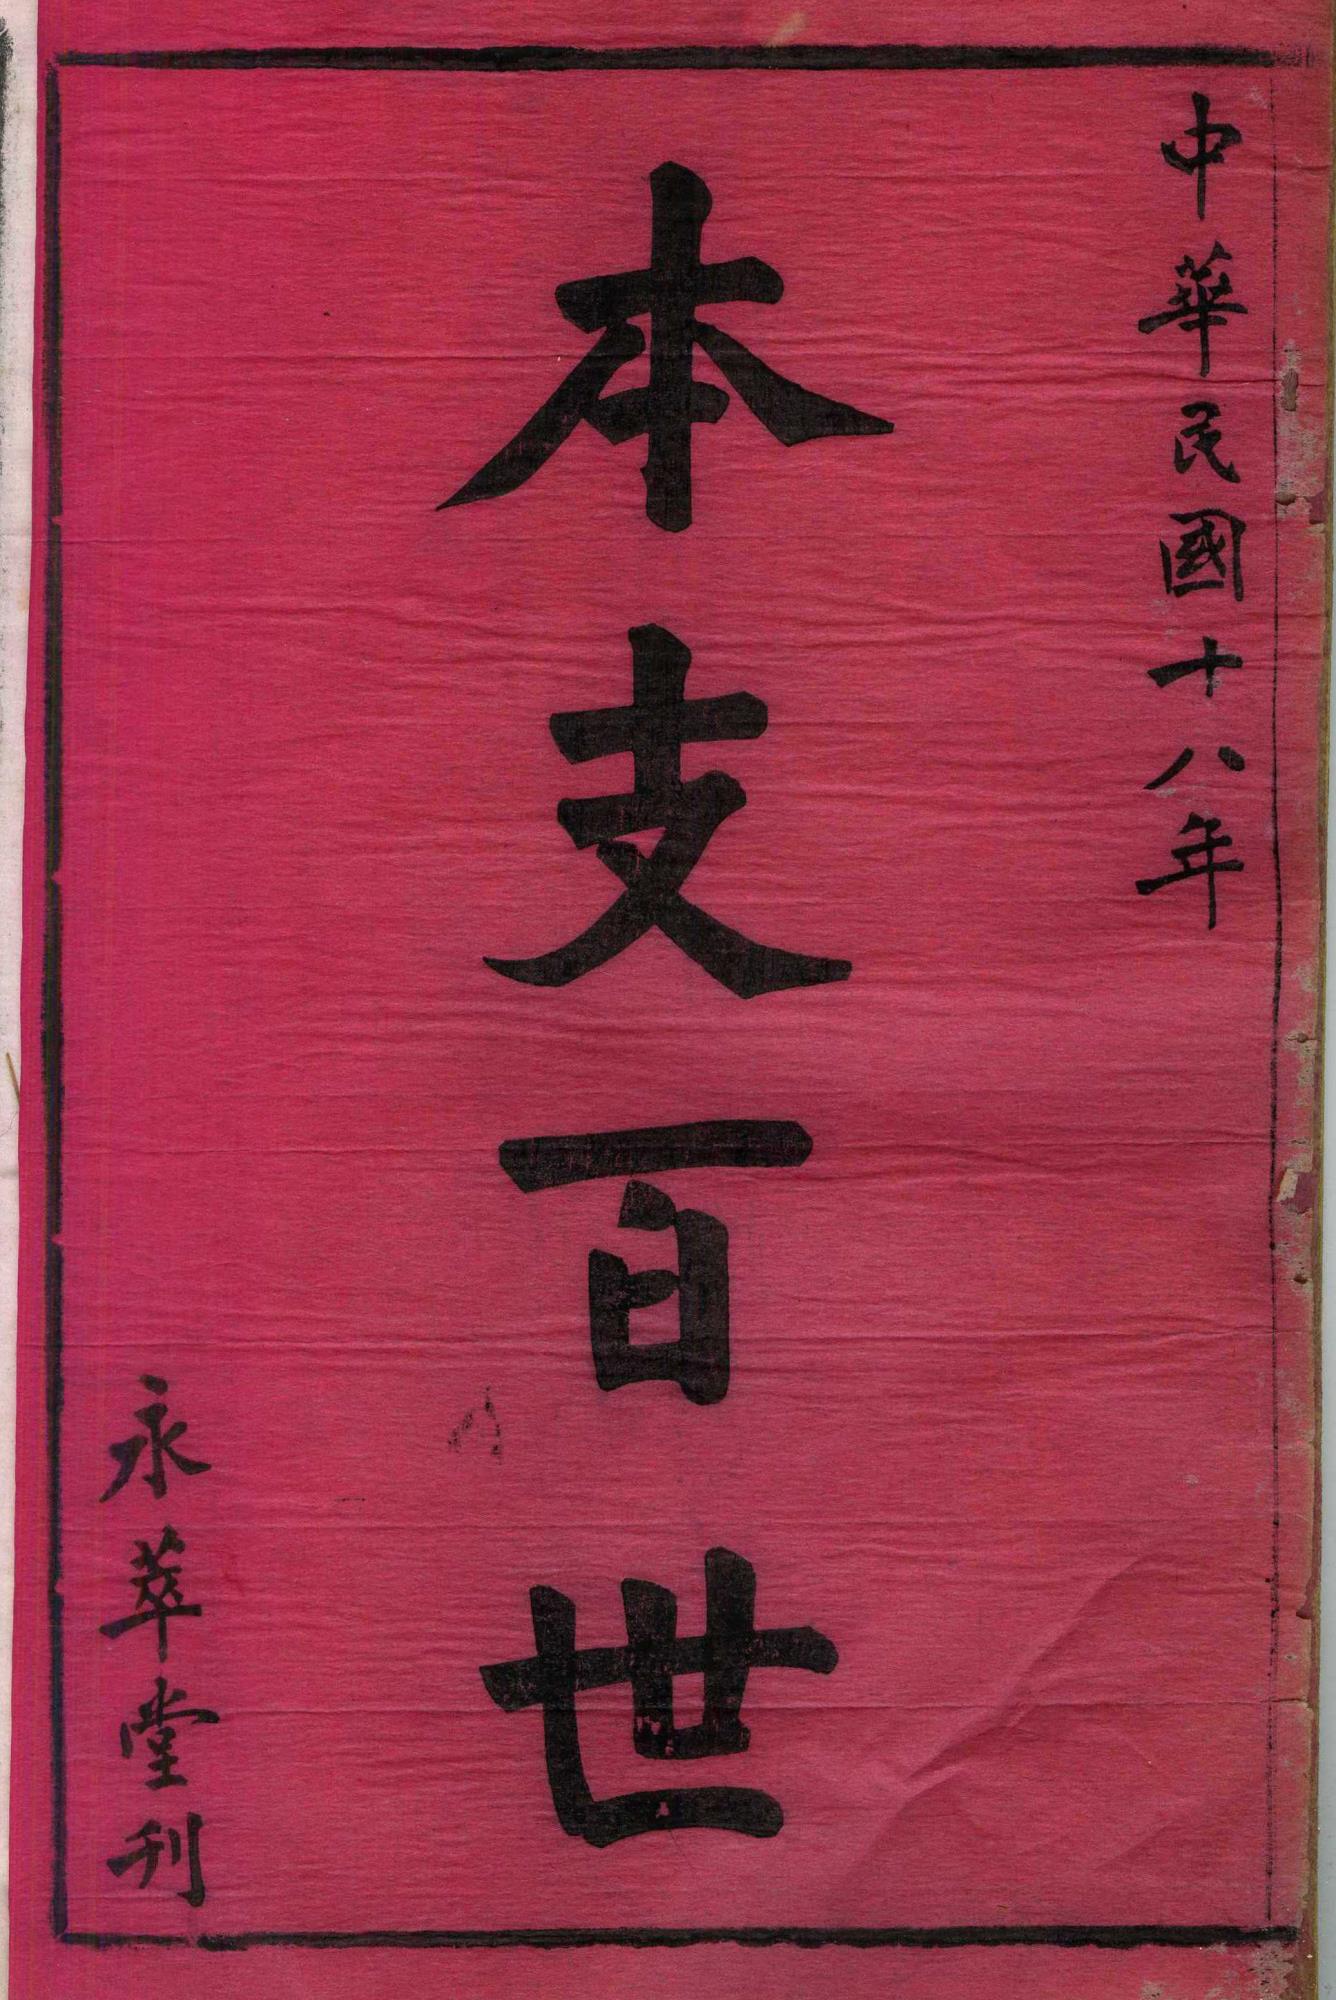 中華民國十八年
本支百世
永萃堂刊